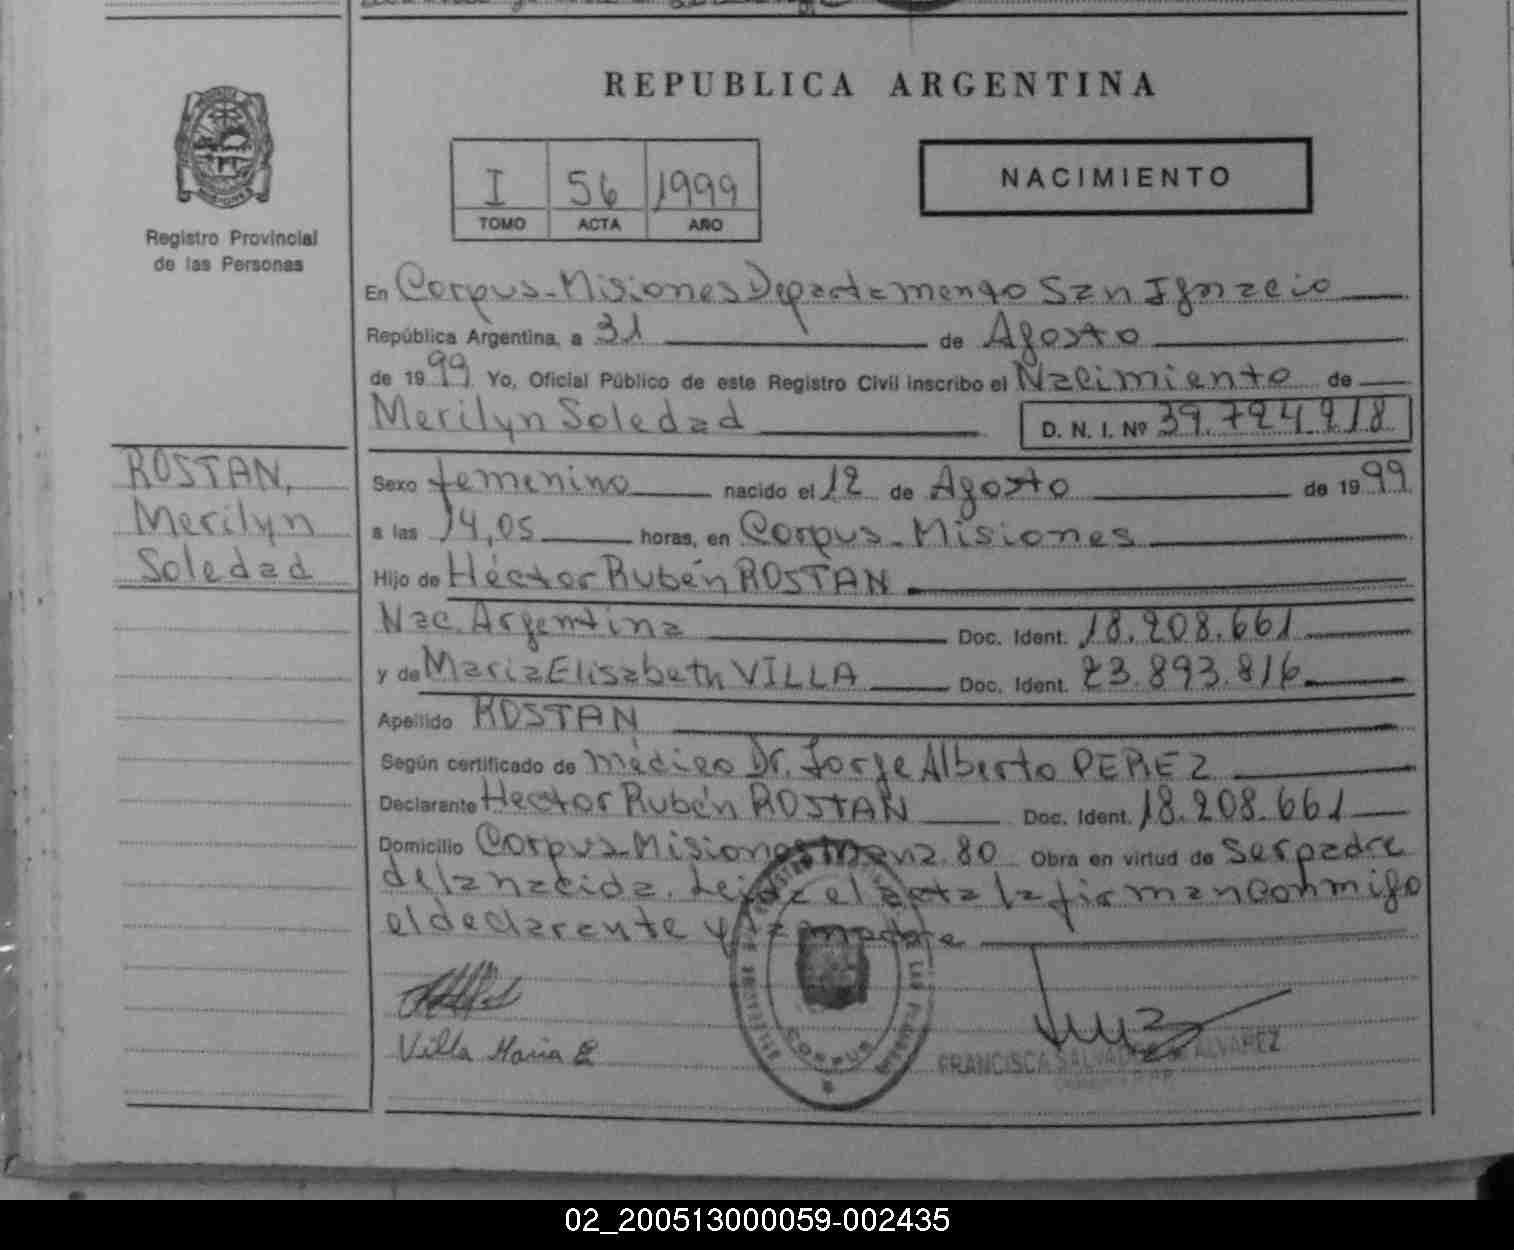 REPUBLICA ARGENTINA
I 56 1999
TOMO ACTA AÑO
NACIMIENTO
Registro Provincial
de las Personas
En Corpus-Misiones Departamento San Ignacio
República Argentina, a 31 de Agosto
de 1999. Yo, Oficial Público de este Registro Civil inscribo el Nacimiento de
Merilyn Soledad D. N. I. Nº 39.724.218
ROSTAN,
Merilyn
Soledad
Sexo femenino nacido el 12 de Agosto de 1999
a las 14,05 horas, en Corpus-Misiones
Hijo de Héctor Rubén ROSTAN
Nac. Argentina Doc. Ident. 18.208.661
y de Maria Elisabeth VILLA Doc. Ident. 23.893.816
Apellido ROSTAN
Según certificado de médico Dr. Jorge Alberto PEREZ
Declarante Hector Rubén ROSTAN Doc. Ident. 18.208.661
Domicilio Corpus-Misiones Manz. 80 Obra en virtud de ser padre
de la nacida. Leida el acta la firman conmigo
el declarante y la madre
Villa Maria E
CORPUS
FRANCISCA ALVAREZ
02_200513000059-002435